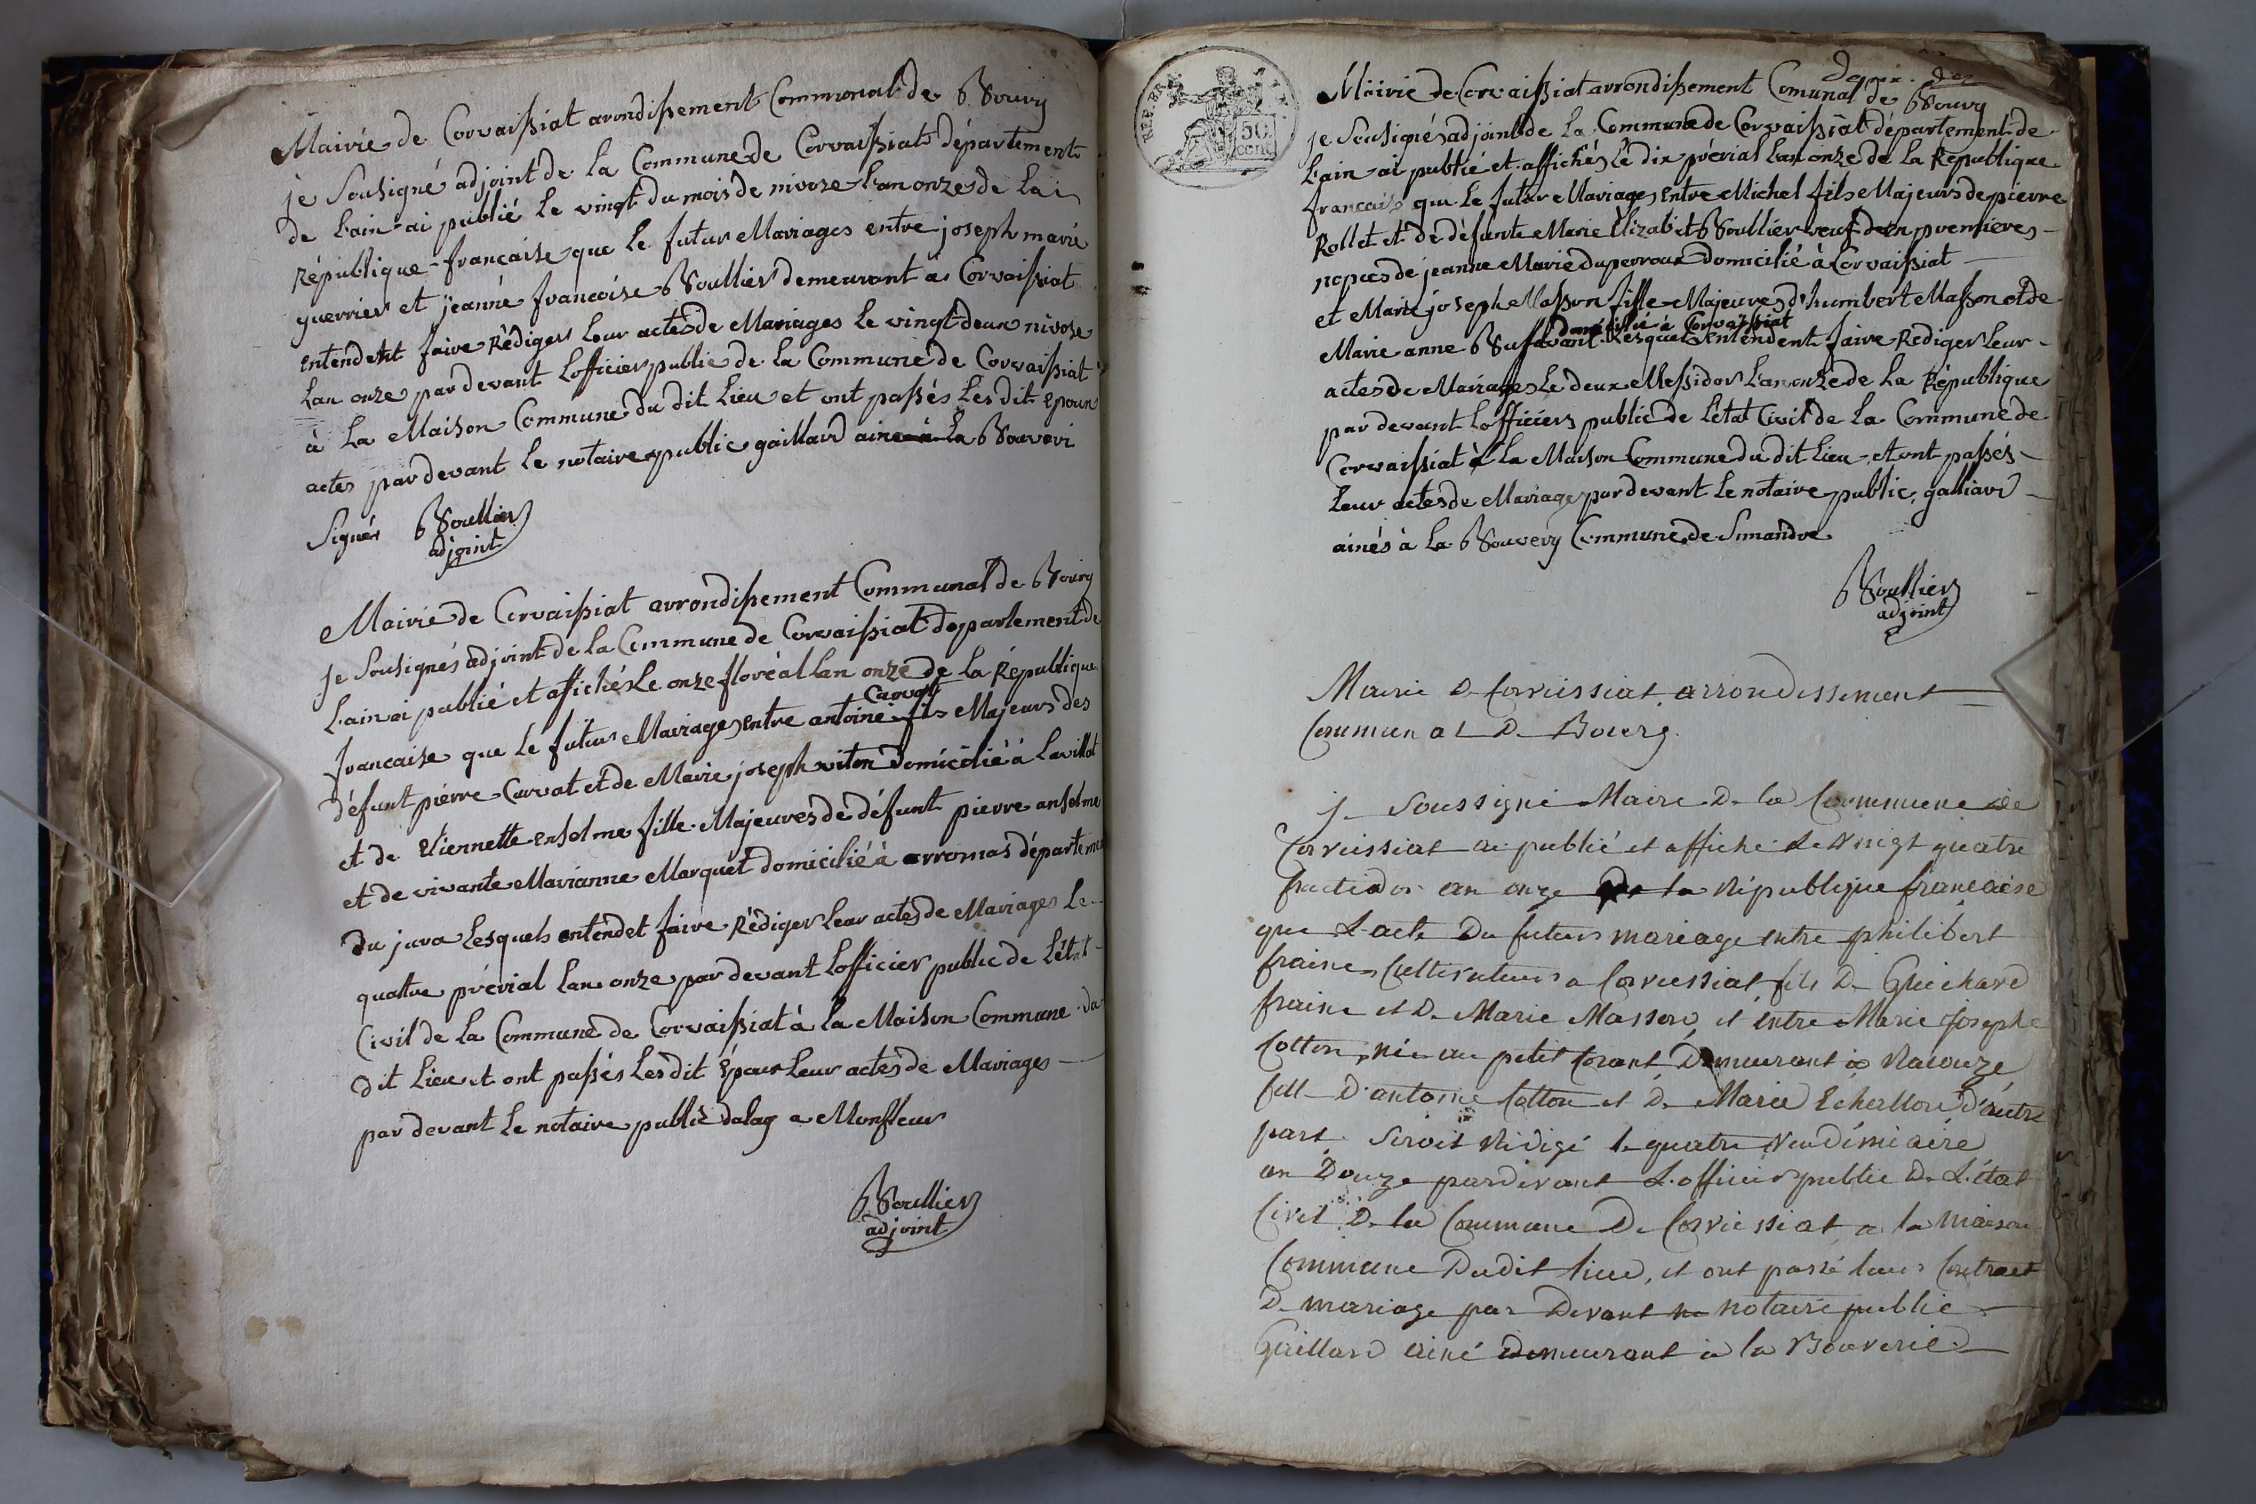 Mairie de Corvaissiat arondissement Communal de Bourg
je Sousigné adjoint de la Commune de Corvaissiat département
de Lain ai publié le vingt du mois de nivose Lan onze de la
République francaise que le futur Mariages entre joseph marie
guerrier et jeanne francoise Boullier demeurant à Corvaissiat
entendent faire Rédiger leur actes de Mariages le vingt deux nivose
Lan onze par devant Lofficier public de la Commune de Corvaissiat
à La Maison Commune du dit Lieu et ont passés Les dit epoux
actes par devant le notaire public gaillard ainé à La Bouveri
Signés Boullier
adjoint
Mairie de Corvaissiat arrondissement Communal de Bourg
je Sousignés adjoint de la Commune de Corvaissiat departement de
Lain ai publié et affichés Le onze floréal Lan onze de la République
francaise que le futur Mariages entre antoine Carvat fils Majeurs des
défunt pierre Carvat et de Marie joseph viton domicilié à Lavillat
et de Piernette enselme fille Majeures de défunt pierre anselme
et de vivante Marianne Marquet domicilié à arromas départemen
du jura Lesquels entendet faire Rédiger Leur actes de Mariages Le
quattre prévial Lan onze par devant Lofficier public de Létat
Civil de la Commune de Corvaissiat à la Maison Commune du
dit Lieu et ont passés Les dit époux Leur actes de Mariages
par devant Le notaire public dalag a Monfleur
Boullier
adjoint
REP. FRA.
50
cent
deux
Mairie de Corvaissiat arrondissement Comunal de Bourg
je Sousignés adjoint de La Commune de Corvaissiat département de
Lain ai publié et affichés Le dix prérial Lan onze de La République
francais que Le futur Mariages entre Michel fils Majeurs de pierre
Rollet et de défunte Marie Elizabet Boullier veuf de en premieres
nopces de jeanne Marie Duperroux domicilié à Corvaissiat
et Marie joseph Masson fille Majeures d'humbert Masson et de
domicilié à Corvaissiat
Marie anne Buffavant Lesquels entendent faire Rediger Leur
actes de Mariages Le deux Messidor Lan onze de La République
par devant Lofficiers public de Létat Civil de La Commune de
Corvaissiat à La Maison Commune du dit Lieu et ont passés
Leur actes de Mariage par devant Le notaire public galliard
ainés à La Bouvery Commune de Simandre
Boullier
adjoint
Mairie De Corveissiat arrondissement
Communal De Bourg
je Soussigné Maire De la Commune de
Corveissiat ai publié et affiché Le Vingt quatre
fructidor an onze de la République francaise
que L'acte Du futur mariage entre philibert
fraine Cultivateur a Corveissiat fils De Guichard
fraine et De Marie Masson et entre Marie Josephe
Cotton née au petit Corant Demeurant à Racouze
fille D'antoine Cotton et De Marie Echallon D'autre
part Seroit Rédigé le quatre Vendémiaire
an Douze pardevant L'officier public De L'état
Civil De la Commune De Corveissiat a la Maison
Commune Dudit lieu, et ont passé leur Contract
De mariage par Devant notaire public
Gaillard ainé Demeurant à la Bouverie